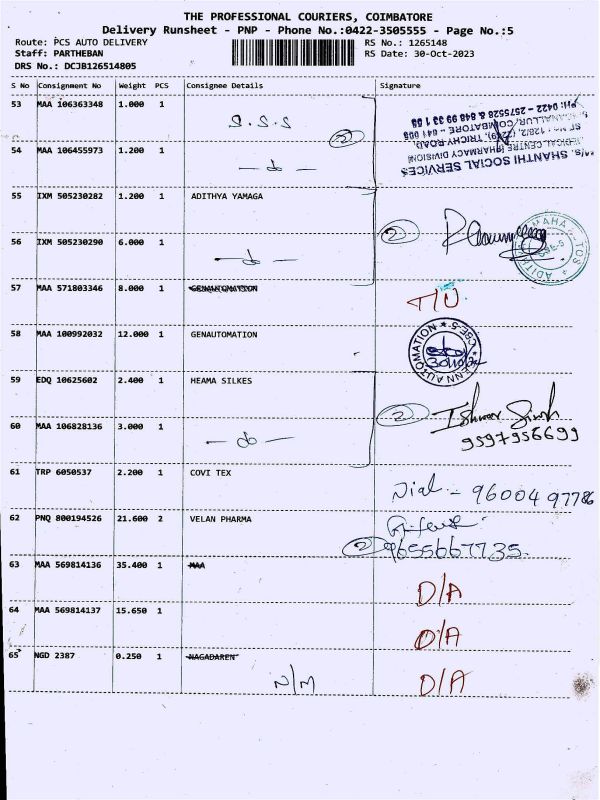 THE PROFESSIONAL COURIERS, COIMBATORE
Delivery Runsheet - PNP - Phone No.:0422-3505555 - Page No.:5
Route: PCS AUTO DELIVERY RS No.: 1265148
Staff: PARTHEBAN RS Date: 30-Oct-2023
DRS No.: DCJB126514805
S No Consignment No Weight PCS Consignee Details Signature
53 MAA 106363348 1.000 1
S.S.S
2
PH: 0422 - 2575528 & 848 99 33 1 08
COIMBATORE - 641 005
TRICHY ROAD,
MEDICAL CENTRE (PHARMACY DIVISION)
M/s. SHANTHI SOCIAL SERVICES
54 MAA 106455973 1.200 1
— do —
55 IXM 505230282 1.200 1 ADITHYA YAMAGA
2
CBE-5
56 IXM 505230290 6.000 1
— do —
57 MAA 571803346 8.000 1 GENAUTOMATION
58 MAA 100992032 12.000 1 GENAUTOMATION
GENN AUTOMATION CBE-5
59 EDQ 10625602 2.400 1 HEAMA SILKES
2 Ishwar Singh
9597956699
60 MAA 106828136 3.000 1
— do —
61 TRP 6050537 2.200 1 COVI TEX
9600497786
62 PNQ 800194526 21.600 2 VELAN PHARMA
2 9655667735
63 MAA 569814136 35.400 1 MAA
D/A
64 MAA 569814137 15.650 1
D/A
65 NGD 2387 0.250 1 NAGADAREN
N/M D/A